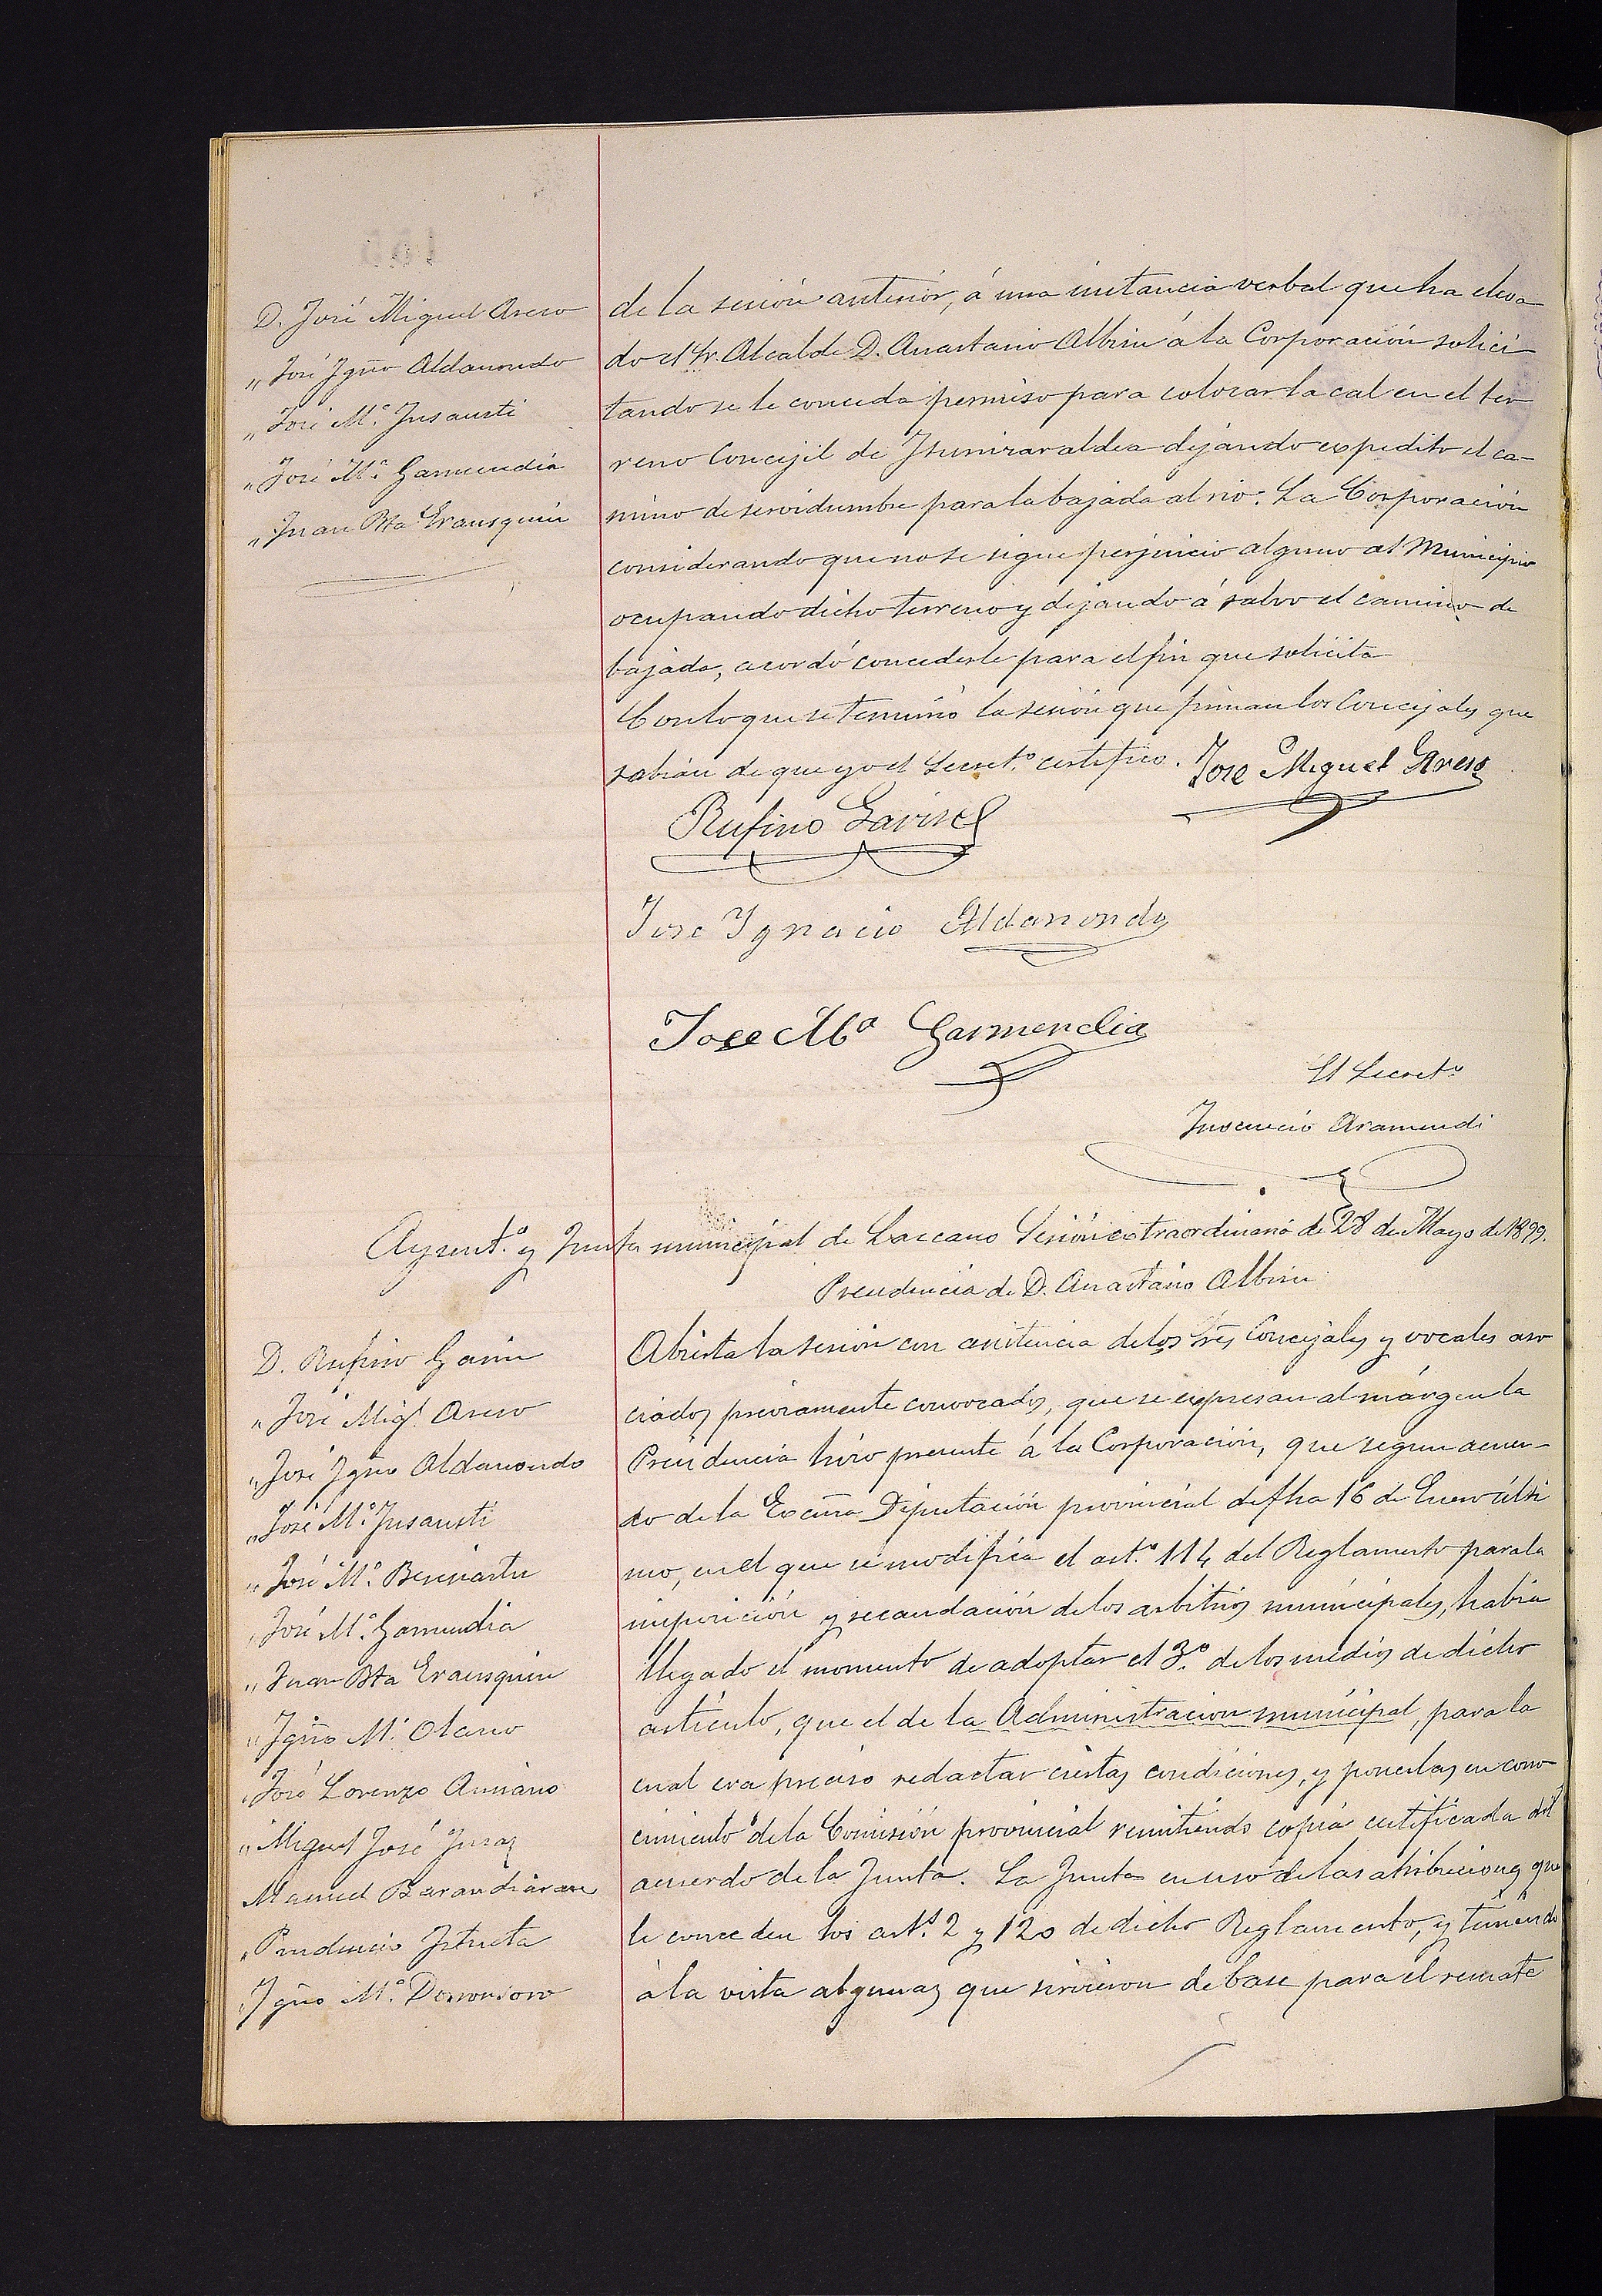 D. José Miguel Areso
„ José Ygn̄o Aldanondo
„ José M.ª Insausti
„ José M.ª Garmendia
„ Juan Bta Erausquin
de la sesión anterior, á una instancia verbal que ha eleva
do el Sr. Alcalde D. Anastasio Albisu á la Corporación solici
tando se le conceda permiso para colocar la cal en el ter
reno Concejil de dejando expedito el ca-
mino de servidumbre para la bajada al rio. La Corporación
considerando que no se sigue perjuicio alguno al Municipio
ocupando dicho terreno y dejando á salvo el camino de
bajada, acordó concederle para el fin que solicita
Con lo que se terminó la sesión que firman los Concejales que
sabían de que yo el Secret.º certifico. Jose Miguel Areso
Rufino Garin
Jose Ygnacio Aldanondo
Jose Mª Garmendia
El Secretº
Inocencio Aramendi
Ayunt.º y Junta municipal de Lazcano Sesión extraordinaria de 28 de Mayo de 1899.
Presidencia de D. Anastasio Albisu
D. Rufino Garin
„ José Mig.l Areso
„ José Ygn̄o Aldanondo
„ José M.ª Insausti
„ José M.ª Beruiartu
„ José M.ª Garmendia
„ Juan Bta Erausquin
„ Ygn̄o M.ª Olano
„ José Lorenzo
„ Miguel José
Manuel Barandiaran
„ Prudencio Iztueta
„ Ygn̄o M.ª Dorronsoro
Abierta la sesión con asistencia de los Sres Concejales y vocales aso
ciados préviamente convocados, que se expresan al márgen la
Presidencia hizo presente á la Corporación, que segun acuer-
do de la Excma Diputación provincial de fha 16 de Enero últi
mo, en el que se modifica el art.º 114 del Reglamento para la
imposición y recaudación de los arbitrios municipales, habia
llegado el momento de adoptar el 3.º de los medios de dicho
artículo, que el de la Administracion municipal, para la
cual era preciso redactar ciertas condiciones, y ponerlas en cono
cimiento de la Comisión provincial remitiendo copia certificada del
acuerdo de la Junta. La Junta en uso de las atribuciones que
le conceden los art.s 2 y 120 de dicho Reglamento, y teniendo
á la vista algunas que sirvieron de base para el remate